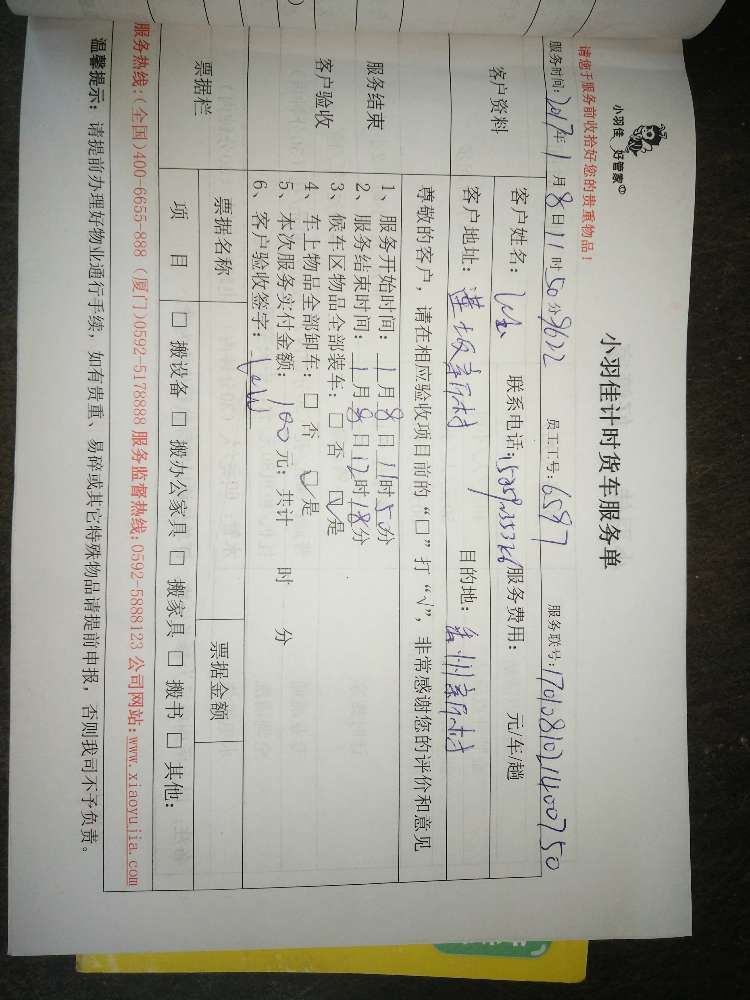 小羽佳 好管家
小羽佳计时货车服务单
请您于服务前收拾好您的贵重物品！
服务时间：2017年1月8日11时50分 员工工号：6597 服务联号：1701081021400750
客户资料
客户姓名： 联系电话： 服务费用： 元/车/趟
客户地址：莲坂新村 目的地：
尊敬的客户，请在相应验收项目前的“□”打“√”，非常感谢您的评价和意见
服务结束
客户验收
1、服务开始时间：1月8日11时50分
2、服务结束时间：1月8日12时18分
3、候车区物品全部装车：□ 否 ☑是
4、车上物品全部卸车：□ 否 ☑是
5、本次服务实付金额：100元；共计 时 分
6、客户验收签字：
票据栏
票据名称 票据金额
项 目 □ 搬设备 □ 搬办公家具 □ 搬家具 □ 搬书 □ 其他：
服务热线：(全国)400-6655-888 (厦门)0592-5178888 服务监督热线：0592-5888123 公司网站：www.xiaoyujia.com
温馨提示：请提前办理好物业通行手续，如有贵重、易碎或其它特殊物品请提前申报，否则我司不予负责。